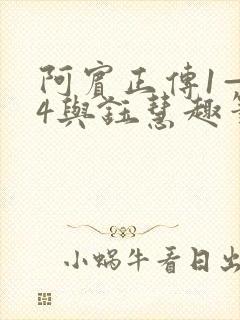 阿賓正傳1—
4與鈺慧趣
小蝸牛看日出